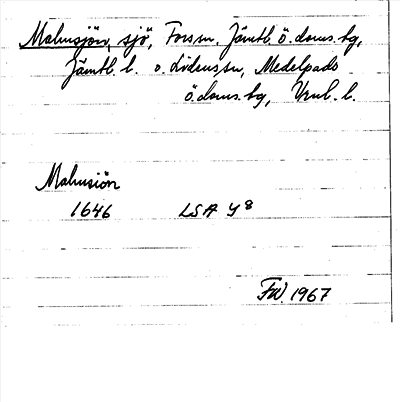 Malmsjön, sjö, Forssn, Jämtl. ö. doms. tg,
Jämtl. l. o. Lidenssn, Medelpads
ö. doms. tg, Vnl. l.
Malmsiön
1646 LSA Y8
FW. 1967